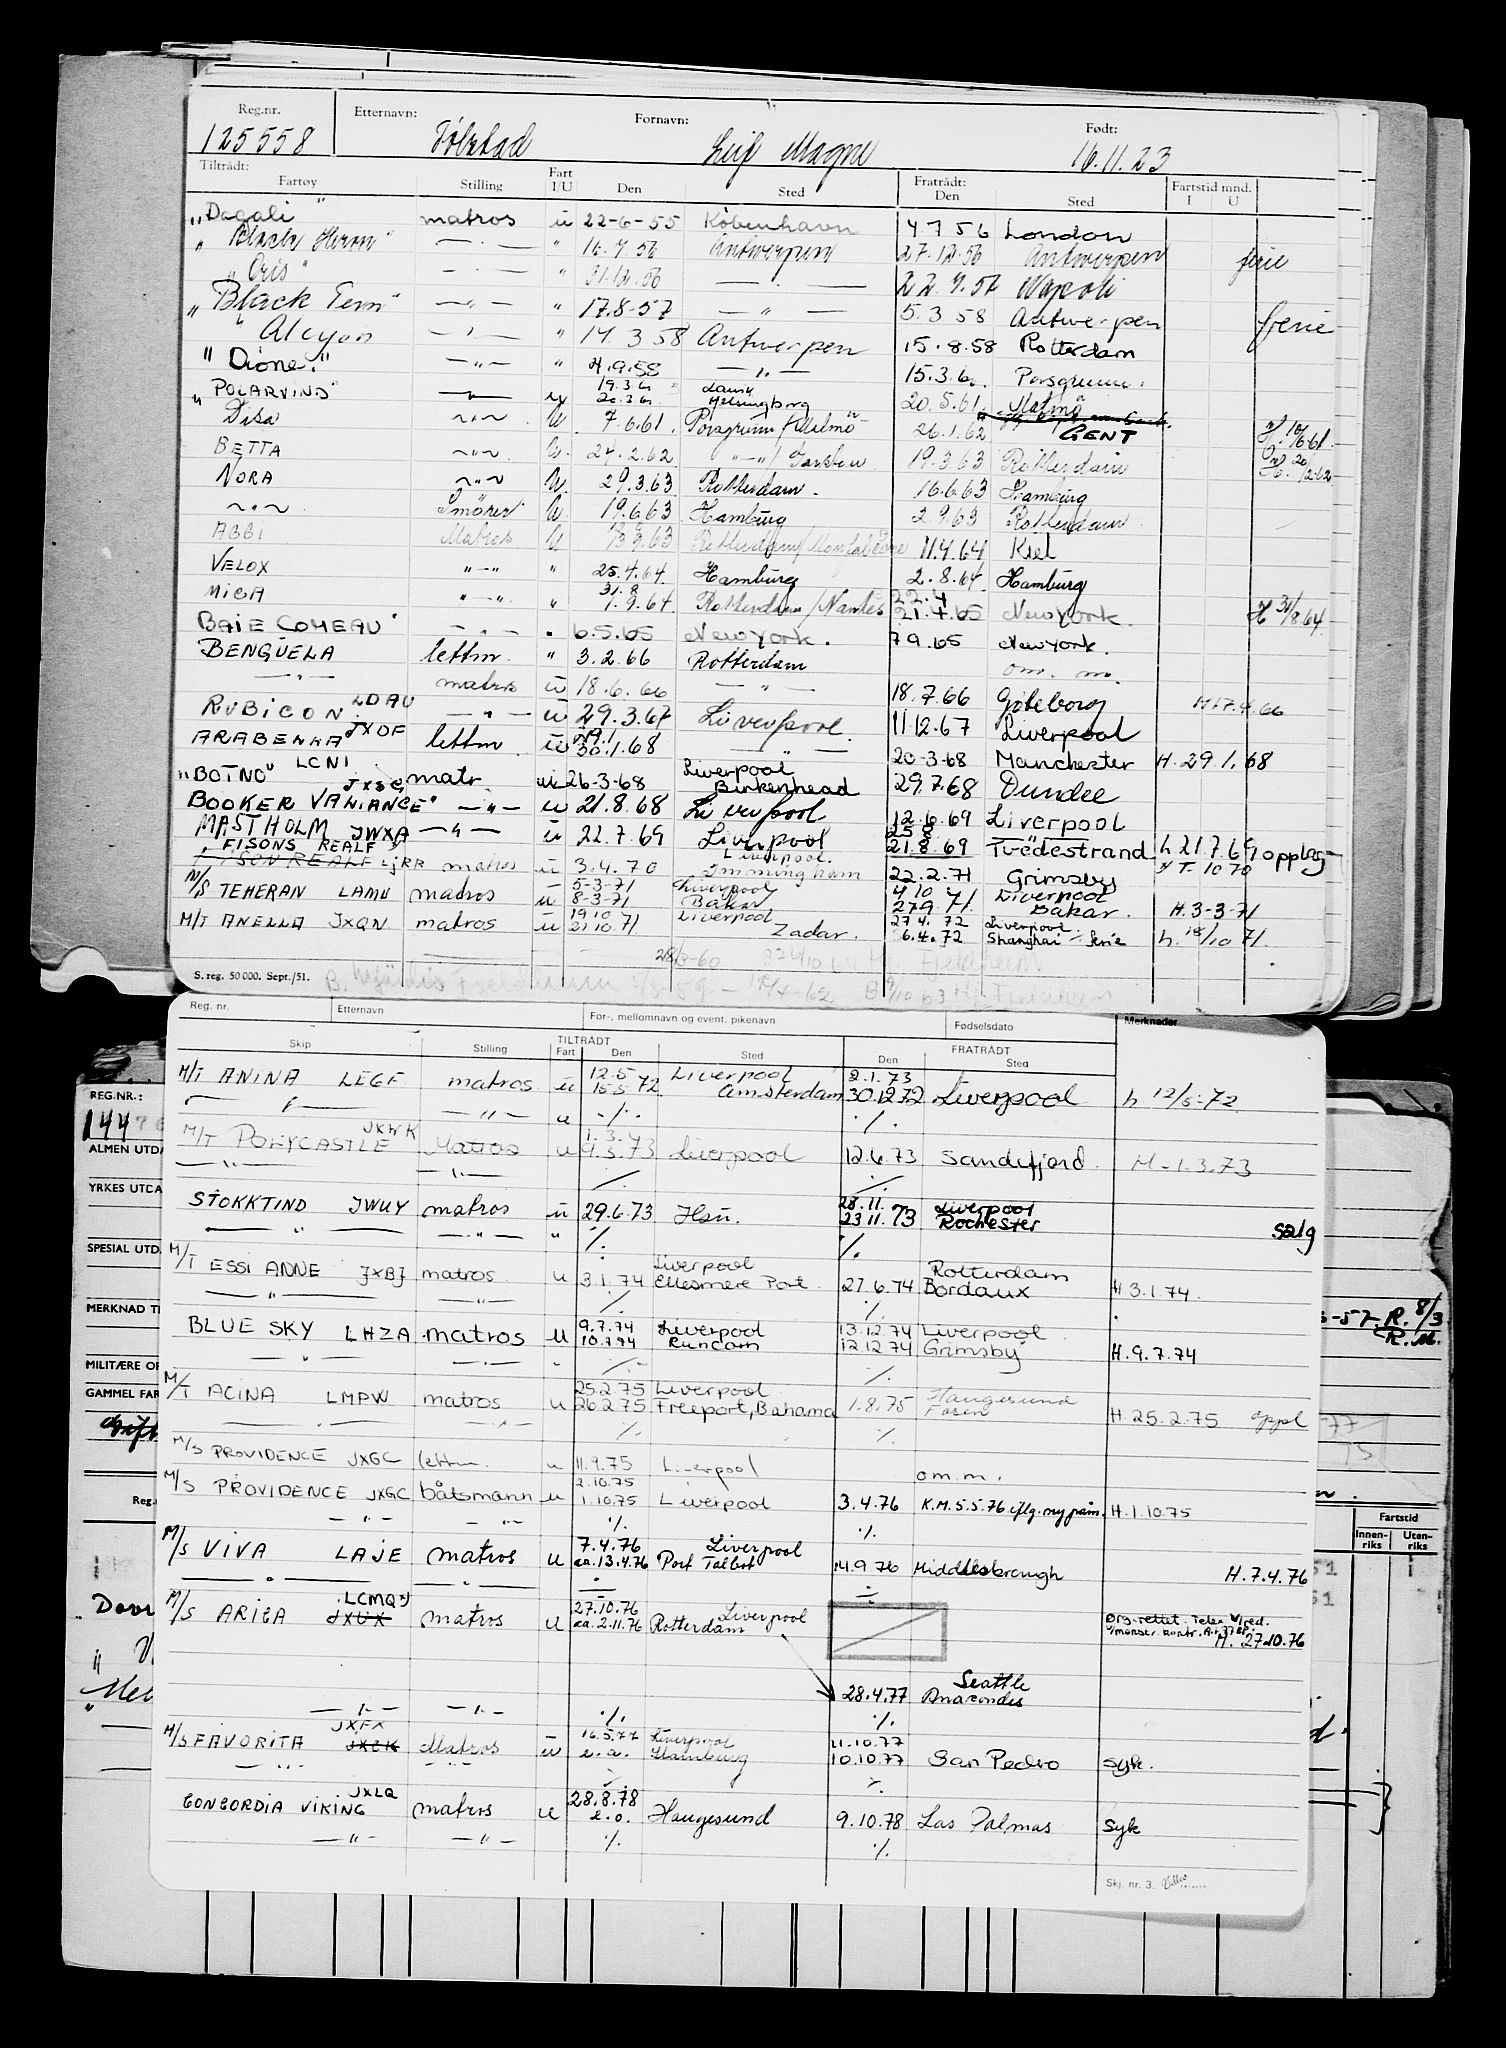 Reg.nr. Etternavn: Fornavn: Født:
125558 Leif Magne 16.11.23
Tiltrådt: Fratrådt: Fartstid mnd.
Fartøy Stilling Fart I/U Den Sted Den Sted I U
"Dagali" matros u 22-6-55 København 4.7.56 London
"Black Heron" — " — " 16.7.56 Antwerpen 27.12.56 Antwerpen ferie
"Cris" — " — " 31.12.56 — " — 22.7.57 Napoli
"Black Tern" — " — " 17.8-57 — " — 5.3.58 Antwerpen ferie
" Alcyon — " — " 14.3.58 Antwerpen 15.8.58 Rotterdam
"Dione." — " — 4.9.58 — " — 15.3.60. Porsgrunn.
"POLARVIND" 19.3.61 20.3.61 Helsingborg 20.5.61 Malmö
Disa — " — U. 7.6.61. Porsgrunn/Malmö 26.1.62 GENT
BETTA — " — U. 24.2.62 19.3.63 Rotterdam
NORA — " — U. 29.3.63 Rotterdam. 16.6.63 Hamburg
— " — Smörer U. 19.6.63 Hamburg 2.9.63 Rotterdam
ABBI Matros U 11.4.64 Kiel
VELOX " — " " 25.4.64 Hamburg 2.8.64. Hamburg
MICA " — " " 31.8 1.9.64 Rotterdam/Nantes 22.4 21.4.65 New York. H 31/8.64.
BAIE COMEAU" — " — " 6.5.65 New York. 7 9.65 New York.
BENGUELA lettm. " 3.2.66 Rotterdam om. m.
— " — matros u 18.6.66 — " — 18.7.66 Göteborg
RUBICON LDAU — " — u 29.3.67 Liverpool. 11 12.67 Liverpool
ARABENHA JXOF lettm. u 30.1.68 — " — 20-3-68 Manchester H. 29 1.68
"BOTNO" LCNI matr. u 26-3-68 Liverpool Birkenhead 29.7.68 Dundee
BOOKER VANIANCE" JXSG — " — u 21.8.68 Liverpool 12.6.69 Liverpool
MASTHOLM JWXA — " — u 22.7.69 Liverpool 25.8 21.8.69 Tvedestrand h 21.7.69 opplag
FISONS REALF LJRR matros u 3.4.70 Liverpool. Immingham 22.2.71 Grimsby
M/S TEHERAN LAMU matros u 5-3-71 8-3-71 Liverpool Bakar 4 10 71 27 9 71. Liverpool Bakar. H. 3-3-71
M/T ANELLA JXQN matros u 19 10 21 10.71 Liverpool Zadar. 27.4.72 6.4.72 Liverpool. Shanghai ferie h. 18/10 71.
S. reg. 50 000. Sept./51.
Reg. nr. Etternavn For-, mellomnavn og event. pikenavn Fødselsdato Merknader
TILTRÅDT FRATRÅDT
Skip Stilling Fart Den Sted Den Sted
M/T ANINA LEGF matros u 12.5 15.5.72 Liverpool Amsterdam 2.1.73 30.12.72 Liverpool h 12/5-72
— " — — " — u ./. ./.
M/T POLYCASTLE JXWK Matros u 1.3. 9.3.73 Liverpool 12.6.73 Sandefjord. H-1.3.73
— " — — " — ./. ./.
STOKKTIND JWUY matros u 29.6.73 Hsu. 28.11. 23 11.73 Liverpool Rochester salg
— " — — " — " ./. ./.
M/T ESSI ANNE JXBJ matros u 3.1.74 Liverpool Ellesmere Port. 27.6.74 Rotterdam Bordaux H 3.1.74.
— " — — " — ./. ./.
BLUE SKY LHZA matros u 9.7.74 10.7.74 Liverpool Runcorn 13.12.74 12.12.74 Liverpool Grimsby H. 9.7.74
— " — — " — ./. ./.
M/T ACINA LMPW matros u 25.2.75 26.2.75 Liverpool Freeport, Bahama 1.8.75 Haugesund H. 25.2.75 oppl
— " — — " — ./. ./.
M/S PROVIDENCE JXGC lettm. u 11.9.75 Liverpool om.m.
M/S PROVIDENCE JXGC båtsmann u 2.10.75 1.10.75 Liverpool 3.4.76 K.M. 5.5.76 iflg. ny påm. H. 1.10.75
— " — — " — ./. ./.
M/S VIVA LAJE matros u 7.4.76 ca. 13.4.76 Liverpool Port Talbot 14.9.76 Middlesbrough H. 7.4.76
— " — — " — ./. ./.
M/S ARICA LCMQ JXUX matros u 27.10.76 ca. 2.11.76 Liverpool Rotterdam H. 27.10.76
28.4.77 Seattle Anacondes
— " — — " — ./. ./.
M/S FAVORITA JXFX Matros u 16.5.77 Liverpool Hamburg 11.10.77 10.10.77 San Pedro syk.
— " — — " — ./. ./.
CONCORDIA VIKING JXLQ matros u 28.8.78 Haugesund 9.10.78 Las Palmas Syk
— " — — " — ./. ./.
Skj. nr. 3.
REG.NR.:
144
ALMEN UTDA
YRKES UTDA
SPESIAL UTD
MERKNAD TI
MILITÆRE OP
GAMMEL FAR
Reg.
-57 R. 8/3
R.M.
Fartstid
Innenriks Utenriks